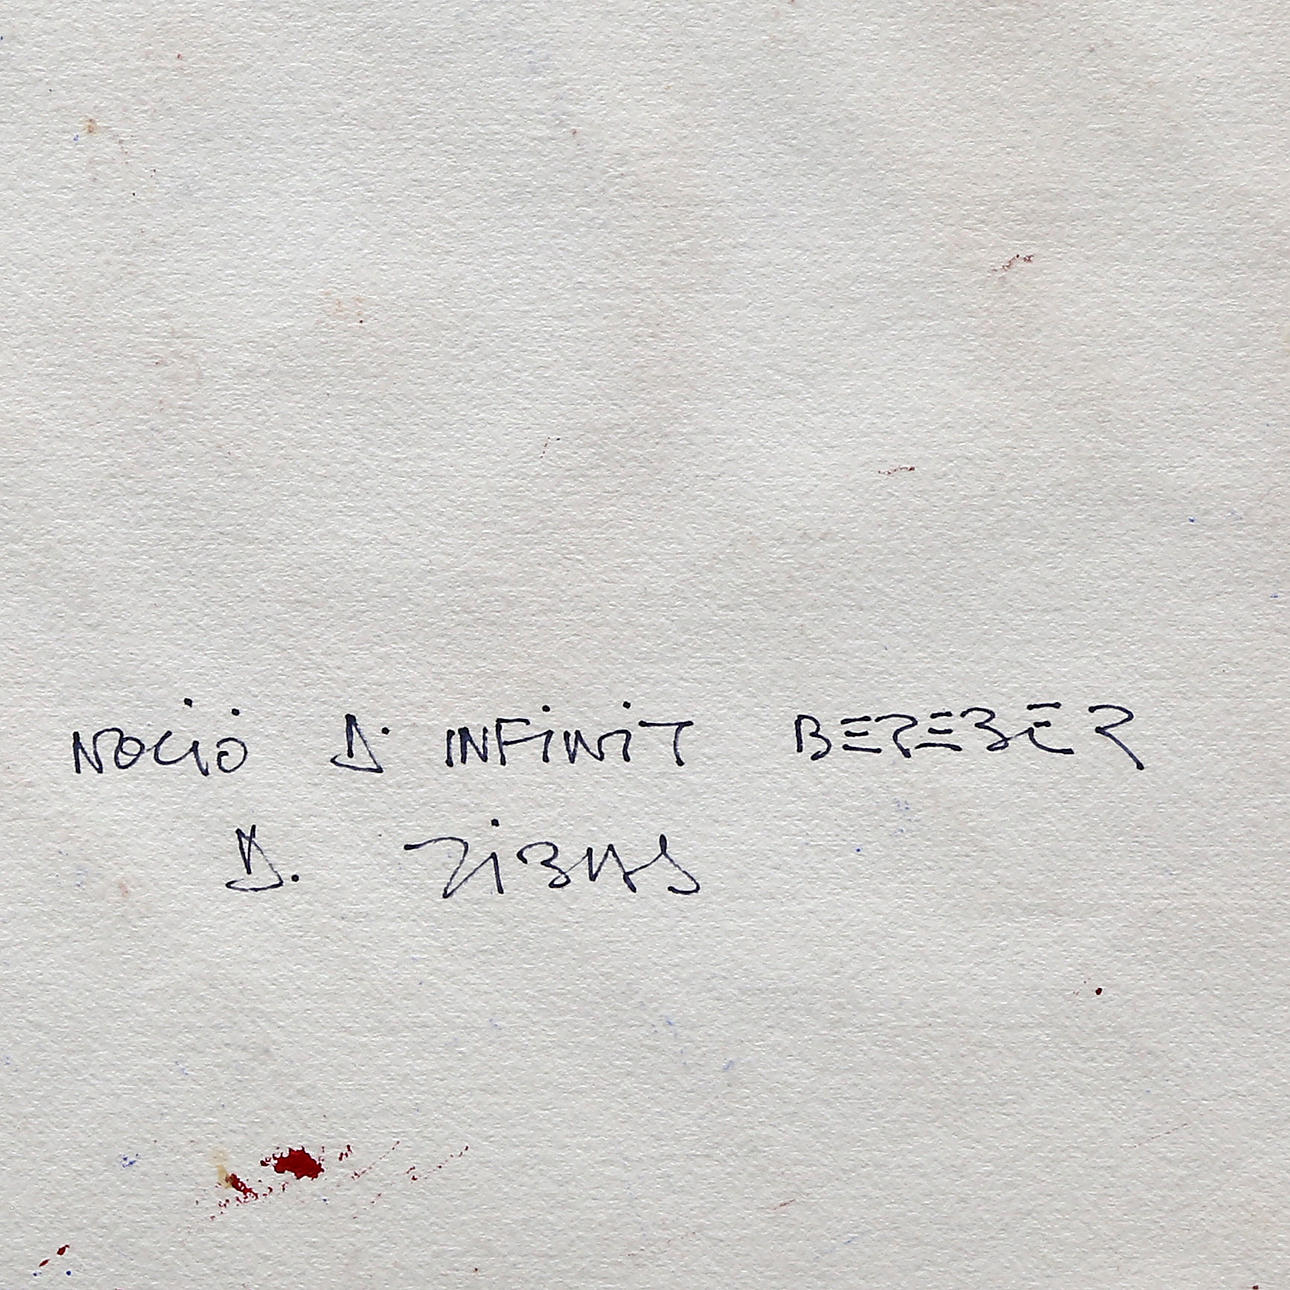 NOCIÓ D' INFINIT BEREBER
D. RIBAS